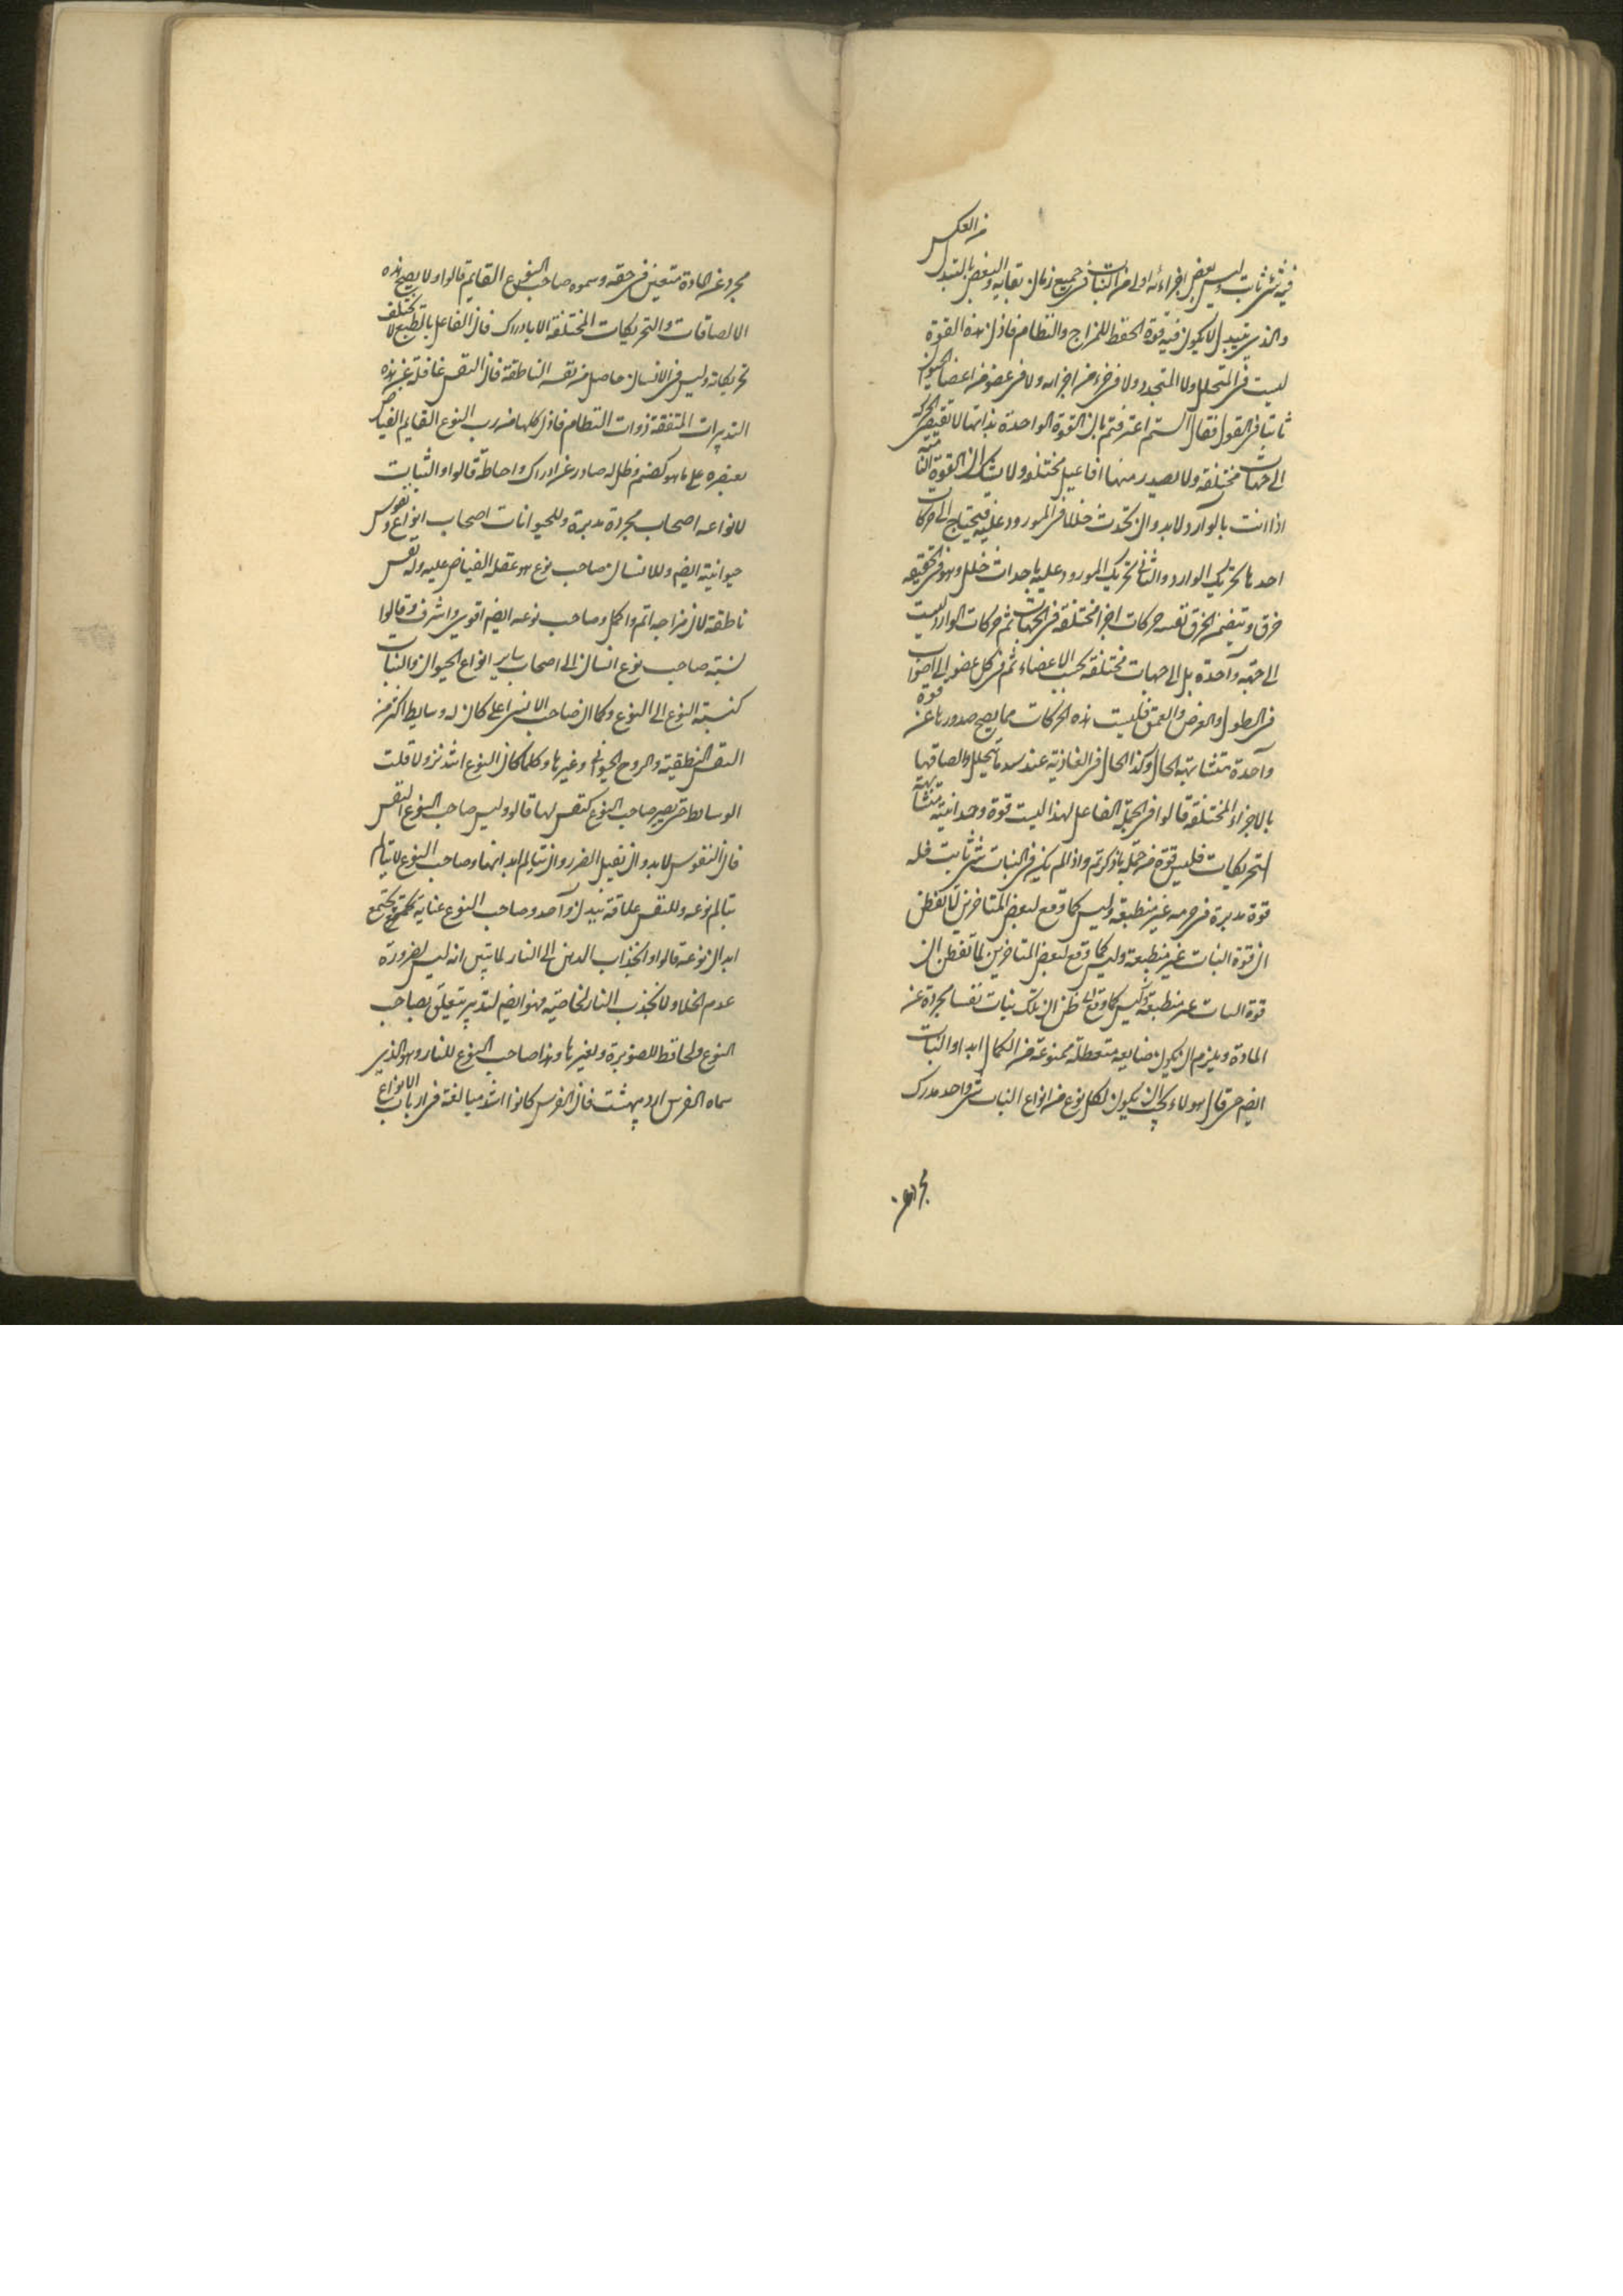 من العكس
فيه شئ ثابت وليس بعض اجزائه اولى من النبات فى جميع زمان بقايه والبعض بالتبدل
والذى يتبدل لا يكون فيه قوة الحفظ للمزاج والنظام فاذن هذه القوة
ليست فى المتحلل ولا المتجدد ولا فى جزء من اجزاءه ولا فى عضو من اعضاء الحيوان
ثابتا فى القول فقال الستم اعترفتم بان القوة الواحدة بذاتها لا تقتضى الحركة
الى جهات مختلفة ولا يصدر منها افاعيل مختلفة ولا شك ان القوة النامية
اذا اتت بالوارد لابد وان تحدث خللا فى المورود عليه فيحتاج الى حركات
احدها تحريك الوارد والثانى تحريك المورود عليه باحداث خلل وهو فى الحقيقه
خرق ويتضمن الخرق نفسه حركات اجزا مختلفة فى الجهات ثم حركات الوارد ليست
الى جهة واحدة بل الى جهات مختلفة بحسب الاعضاء ثم فى كل عضو الى اصواب
فى الطول والعرض والعمق فليست هذه الحركات مما يصح صدورها عن قوة
واحدة متشابهة الحال وكذا الحال فى الغاذية عند سد ما يتحلل والصاقها
بالاجزاء المختلفة قالوا فى الجملة الفاعل لهذا ليست قوة وحدانية متشابهة
التحريكات فليس قوة من جملة ما ذكرتم واذا لم يكن فى النبات شئ ثابت فله
قوة مدبرة فى جرمه غير منطبعة وليس كما وقع لبعض المتاخرين لما تفطن
ان قوة النبات غير منطبعة وليس كما وقع لبعض المتاخرين لما تفطن ان
قوة النبات غير منطبعة وليس كما وقع ظن ان تلك بنات نفسا مجردة عن
المادة ويلزم ان يكون ضايعه متعطلة ممنوعة من الكمال ابدا والنبات
ايضم حتى قال هولاء يجب ان يكون لكل نوع من انواع النبات شئ واحد مدرك
مجرد عن
مجرد عن المادة متعين فى حقه وسموه صاحب النوع القايم قالوا ولا يصح هذه
الالصاقات والتحريكات المختلفة الا بادراك فان الفاعل بالطبع لا تختلف
تحريكاته وليس فى الانسان حاصل من نفسه الناطقة فان النفس غافلة عن هذه
التدبيرات المتفقة ذوات النظام فاذن كلها من رب النوع القايم الفياض
بعنصره على ما هو كصنم وظل له صادر عن ادراك واحاطة قالوا والنبات
لانواعه اصحاب مجردة مدبرة وللحيوانات اصحاب انواع ونفوس
حيوانية ايضم وللانسان صاحب نوع هو عقله الفياض عليه وله نفس
ناطقة لان مزاجه اتم واكمل وصاحب نوعه ايضم اقوى واشرف وقالوا
نسبة صاحب نوع انسان الى اصحاب ساير انواع الحيوان والنبات
كنسبة النوع الى النوع وكما ان صاحب الانسى اعلى كان له وسايط اكثر من
النفس النطقية والروح الحيوانى وغيرها وكلما كان النوع اشد نزولا قلت
الوسايط حتى يصير صاحب النوع كنفس لها قالوا وليس صاحب النوع النفس
فان النفوس لابد وان تقبل الضرر وان تتالم ابدانها وصاحب النوع لا يتالم
بتالم نوعه وللنفس علاقة ببدن واحد وصاحب النوع عنايه بجميع
ابدان نوعه قالوا وانجذاب الدهن الى النار لما تبين انه ليس لضرورة
عدم الخلا ولا بجذب النار لخاصية فهو ايضم لتدبير متعلق بصاحب
النوع ولحافظ للصنوبرة ولغيرها وهذا صاحب النوع للنار وهو الذى
سماه الفرس ارد يبهشت فان الفرس كانوا اشد مبالغة فى ارباب الانواع